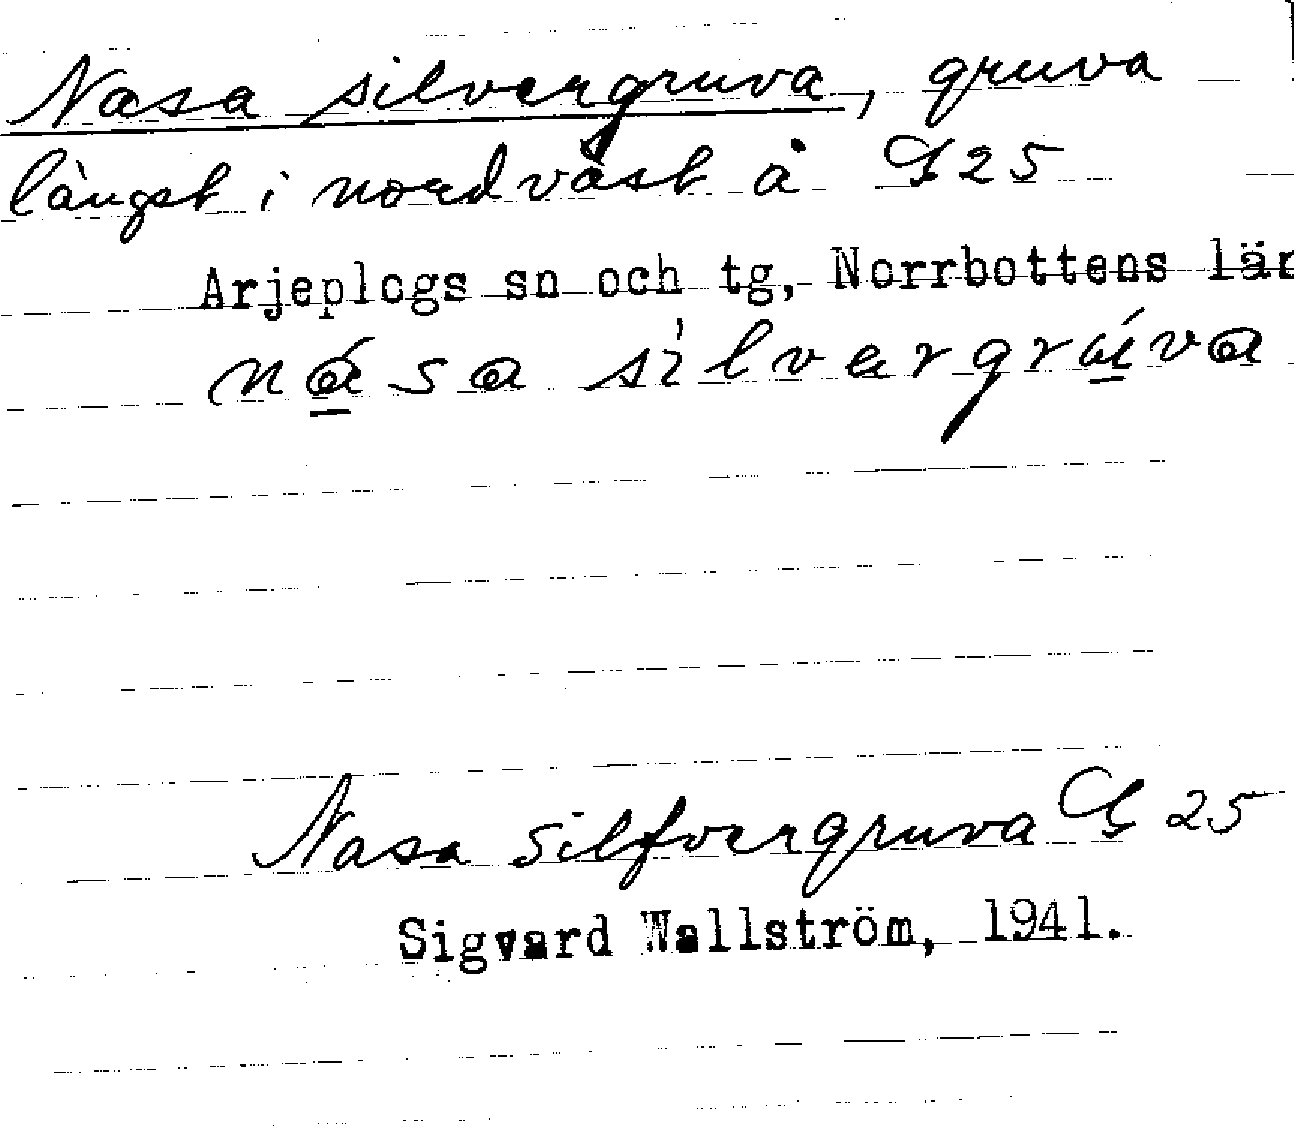 Nasa silvergruva, gruva
längst i nordväst å G 25
Arjeplogs sn och tg, Norrbottens län
nása silvergrúva
Nasa Silfvergruva G 25
Sigvard Wallström, 1941.